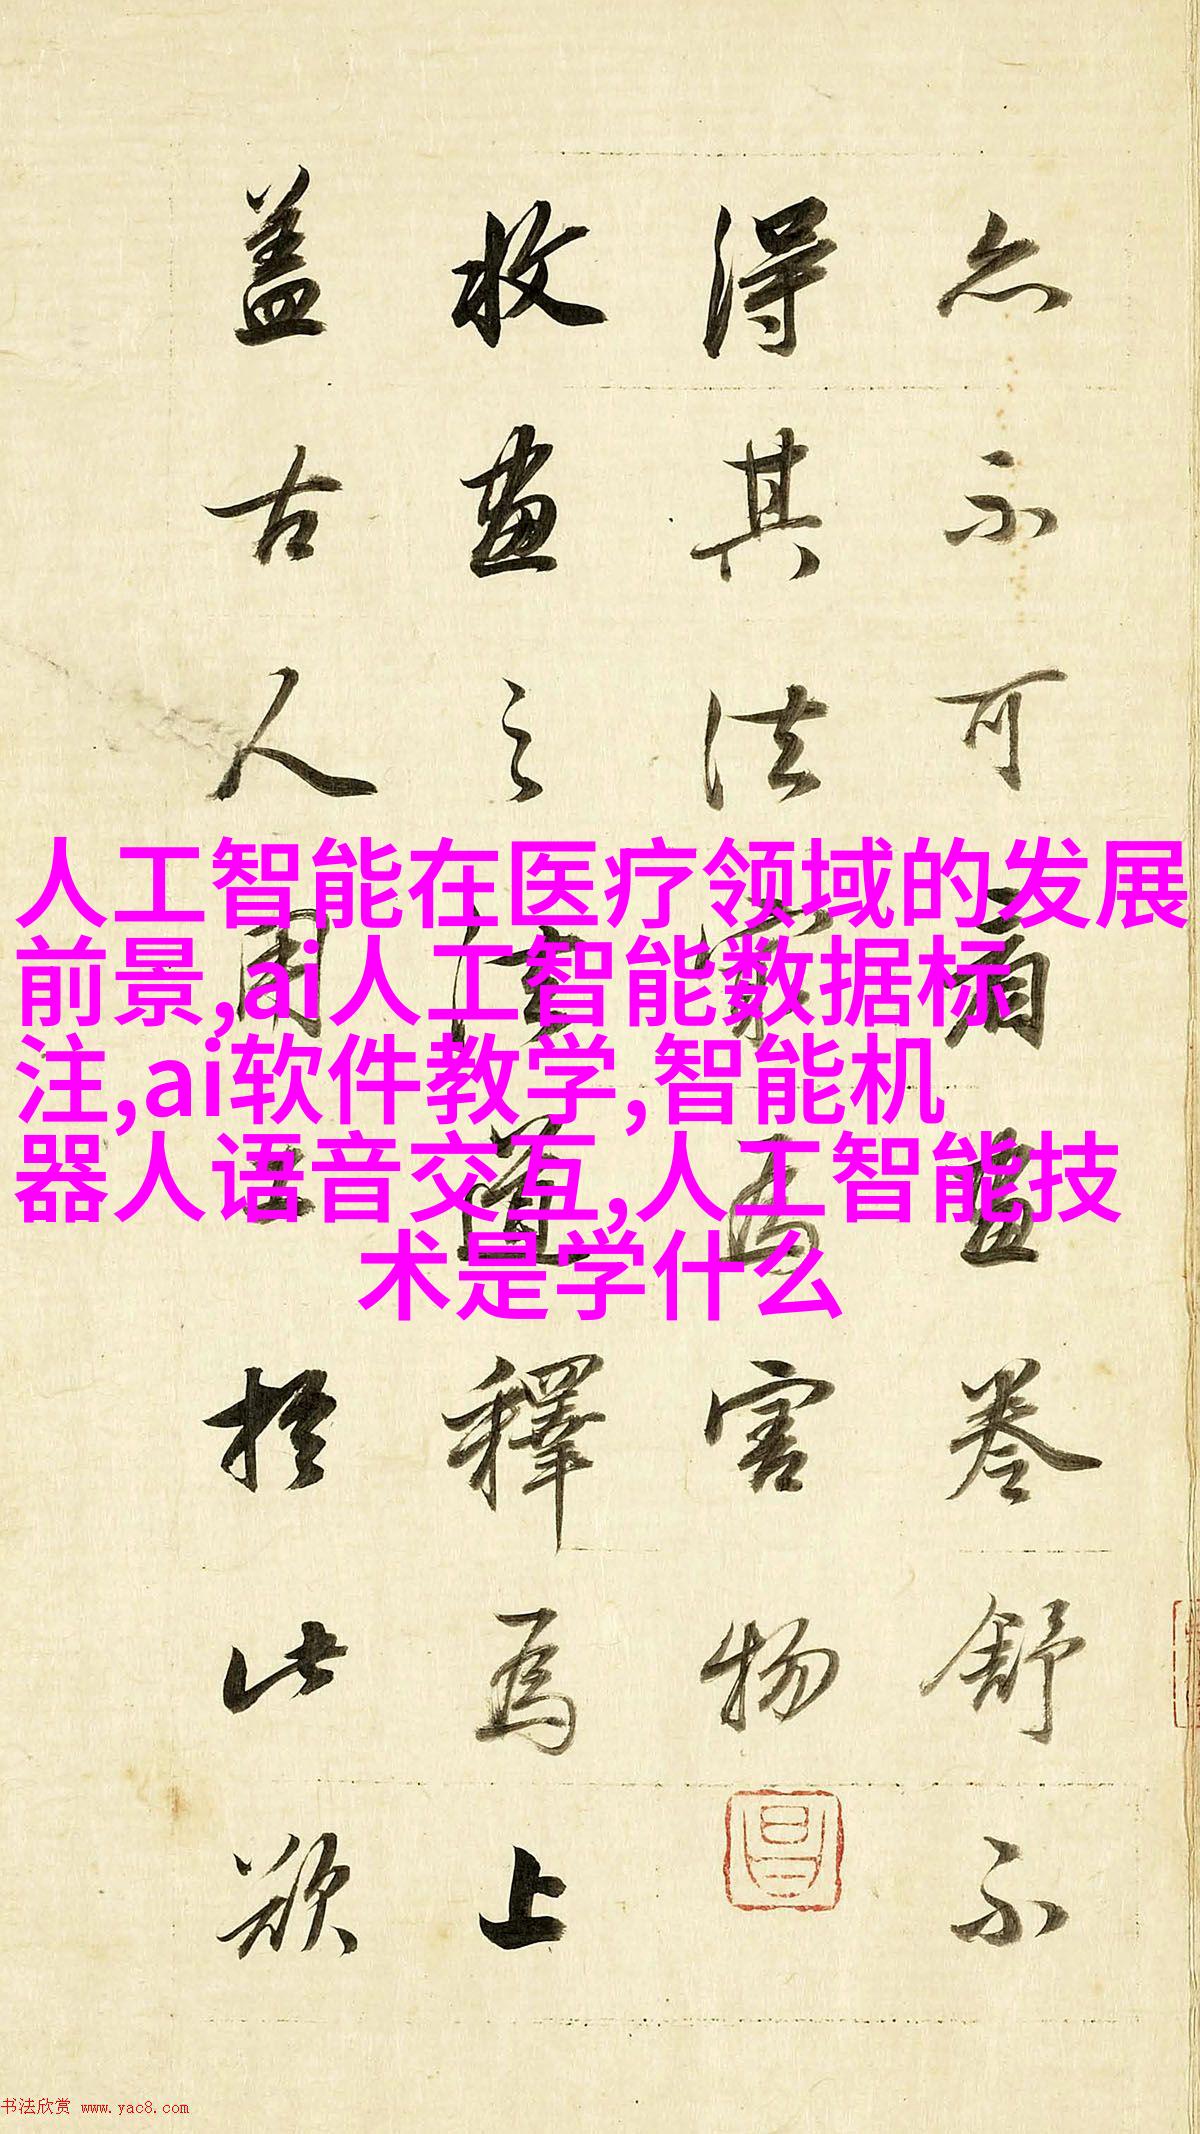 人工智能在医疗领域的发展
前景,ai人工智能数据标
注,ai软件教学,智能机
器人语音交互,人工智能技
术是学什么
亦不可盈卷舒不
得其法為害物
收畫之法道釋為上
蓋古人用工於此欲
书法欣赏 www.yac8.com